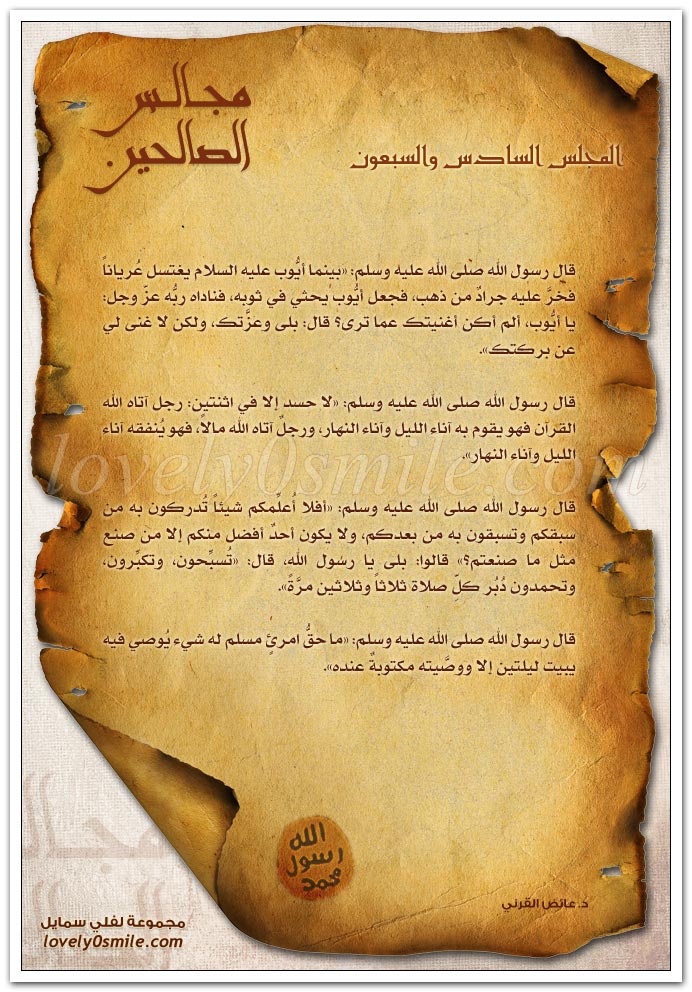 مجالس
الصالحين
المجلس السادس والسبعون
قال رسول الله صلى الله عليه وسلم: «بينما أيُّوب عليه السلام يغتسل عُرياناً
فخرَّ عليه جرادٌ من ذهب، فجعل أيُّوب يحثي في ثوبه، فناداه ربُّه عزّ وجل:
يا أيُّوب، ألم أكن أغنيتك عما ترى؟ قال: بلى وعزَّتك، ولكن لا غنى لي
عن بركتك».
قال رسول الله صلى الله عليه وسلم: «لا حسد إلا في اثنتين: رجل آتاه الله
القرآن فهو يقوم به آناء الليل وآناء النهار، ورجلٌ آتاه الله مالاً، فهو يُنفقه آناء
الليل وآناء النهار».
lovely0smile.com
قال رسول الله صلى الله عليه وسلم: «أفلا أُعلِّمكم شيئاً تُدركون به من
سبقكم وتسبقون به من بعدكم، ولا يكون أحدٌ أفضل منكم إلا من صنع
مثل ما صنعتم؟» قالوا: بلى يا رسُول الله، قال: «تُسبِّحون، وتكبِّرون،
وتحمدون دُبُر كلِّ صلاة ثلاثاً وثلاثين مرَّةً».
قال رسول الله صلى الله عليه وسلم: «ما حقُّ امرئٍ مسلم له شيء يُوصي فيه
يبيت ليلتين إلا ووصَّيته مكتوبةٌ عنده».
الله
رسول
محمد
د.عائض القرني
مجموعة لفلي سمايل
lovely0smile.com